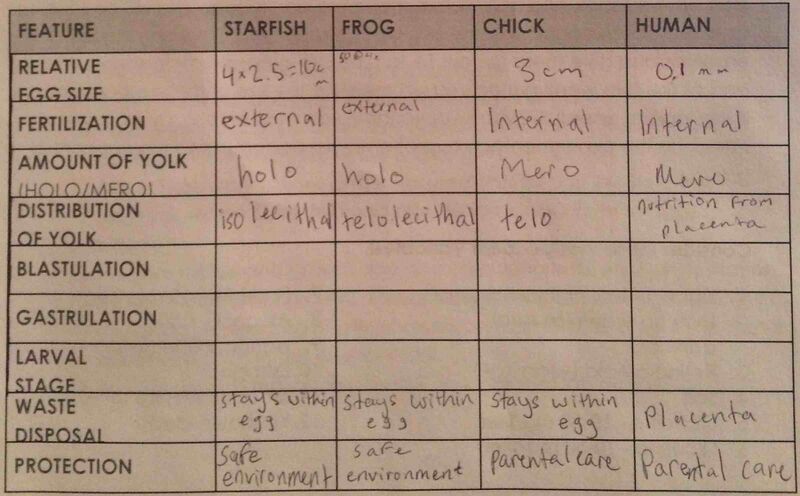 FEATURE STARFISH FROG CHICK HUMAN
RELATIVE
EGG SIZE 4×2.5=10cm 3cm 0.1mm
FERTILIZATION external external Internal Internal
AMOUNT OF YOLK
(HOLO/MERO) holo holo Mero Mero
DISTRIBUTION
OF YOLK isolecithal telolecithal telo nutrition from placenta
BLASTULATION
GASTRULATION
LARVAL
STAGE
WASTE
DISPOSAL stays within egg stays within egg stays within egg Placenta
PROTECTION safe environment safe environment parental care Parental care